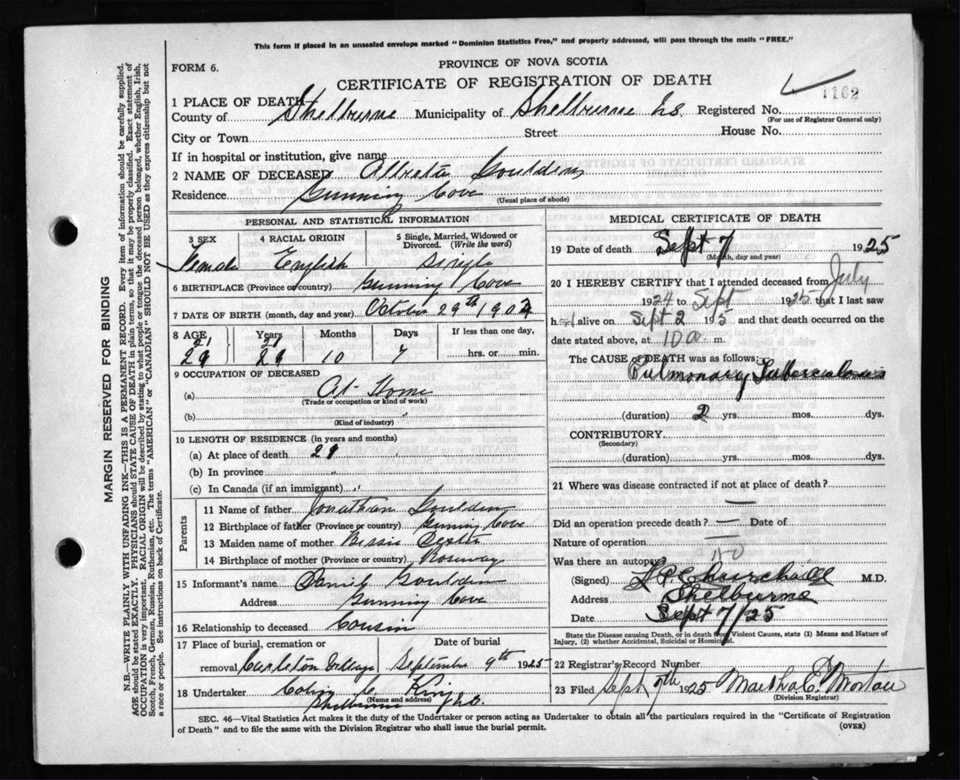 This form if placed in an unsealed envelope marked "Dominion Statistics Free," and properly addressed, will pass through the mails "FREE."
FORM 6.
PROVINCE OF NOVA SCOTIA
CERTIFICATE OF REGISTRATION OF DEATH
1102
1 PLACE OF DEATH
County of Shelburne Municipality of Shelburne Registered No.
(For use of Registrar General only)
City or Town Street House No.
If in hospital or institution, give name
2 NAME OF DECEASED Goulden
Residence Gunning Cove
(Usual place of abode)
PERSONAL AND STATISTICAL INFORMATION
3 SEX 4 RACIAL ORIGIN 5 Single, Married, Widowed or Divorced. (Write the word)
Female English Single
6 BIRTHPLACE (Province or country) Gunning Cove
7 DATE OF BIRTH (month, day and year) October 29th
8 AGE Years Months Days If less than one day,
10 7 hrs. or min.
9 OCCUPATION OF DECEASED
(a) At Home
(Trade or occupation or kind of work)
(b)
(Kind of industry)
10 LENGTH OF RESIDENCE (in years and months)
(a) At place of death
(b) In province "
(c) In Canada (if an immigrant) "
Parents
11 Name of father Jonathan Goulden
12 Birthplace of father (Province or country) Gunning Cove
13 Maiden name of mother Bessie
14 Birthplace of mother (Province or country) Roseway
15 Informant's name Goulden
Address Gunning Cove
16 Relationship to deceased Cousin
17 Place of burial, cremation or Date of burial
removal Carleton Village September 9th 1925
18 Undertaker King
(Name and address)
Shelburne
MEDICAL CERTIFICATE OF DEATH
19 Date of death Sept 7 1925
(Month, day and year)
20 I HEREBY CERTIFY that I attended deceased from July
1924 to Sept 1925 that I last saw
h alive on Sept 2 195 and that death occurred on the
date stated above, at 10 a m.
The CAUSE OF DEATH was as follows:
Pulmonary Tuberculosis
(duration) 2 yrs. mos. dys.
CONTRIBUTORY
(Secondary)
(duration) yrs. mos. dys.
21 Where was disease contracted if not at place of death?
—
Did an operation precede death? — Date of
Nature of operation —
Was there an autopsy no
(Signed) Churchill M.D.
Address Shelburne
Date Sept 7/25
State the Disease causing Death, or in death from Violent Causes, state (1) Means and Nature of
Injury, (2) whether Accidental, Suicidal or Homicidal.
22 Registrar's Record Number
23 Filed Sept 1925 Martha E. Morton
(Division Registrar)
SEC. 46—Vital Statistics Act makes it the duty of the Undertaker or person acting as Undertaker to obtain all the particulars required in the "Certificate of Registration
of Death" and to file the same with the Division Registrar who shall issue the burial permit.
(OVER)
MARGIN RESERVED FOR BINDING
N.B.—WRITE PLAINLY WITH UNFADING INK—THIS IS A PERMANENT RECORD. Every item of information should be carefully supplied.
AGE should be stated EXACTLY. PHYSICIANS should STATE CAUSE OF DEATH in plain terms, so that it may be properly classified. Exact statement of
OCCUPATION is very important. RACIAL ORIGIN will be described by stating to what people or tongue the deceased person belonged, whether English, Irish,
Scotch, French, German, Russian, Ruthenian, etc. The terms "AMERICAN" or "CANADIAN" SHOULD NOT BE USED as they express citizenship but not
a race or people. See instructions on back of Certificate.